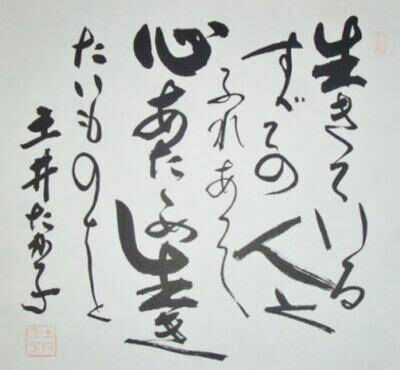 生きている
すべての人と
ふれあって
心あたゝめ生き
たいもの
土井たか子